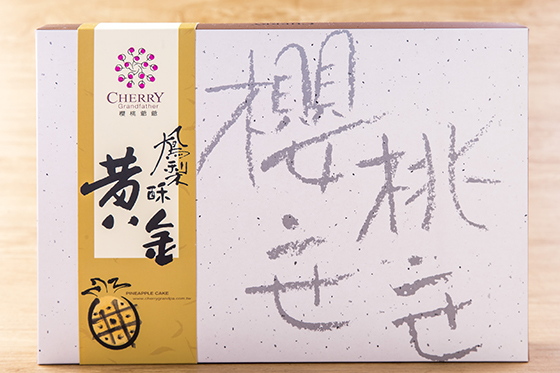 CHERRY
Grandfather
櫻桃爺爺
鳳梨酥
黄金
PINEAPPLE CAKE
www.cherrygrandpa.com.tw
櫻桃
爺爺